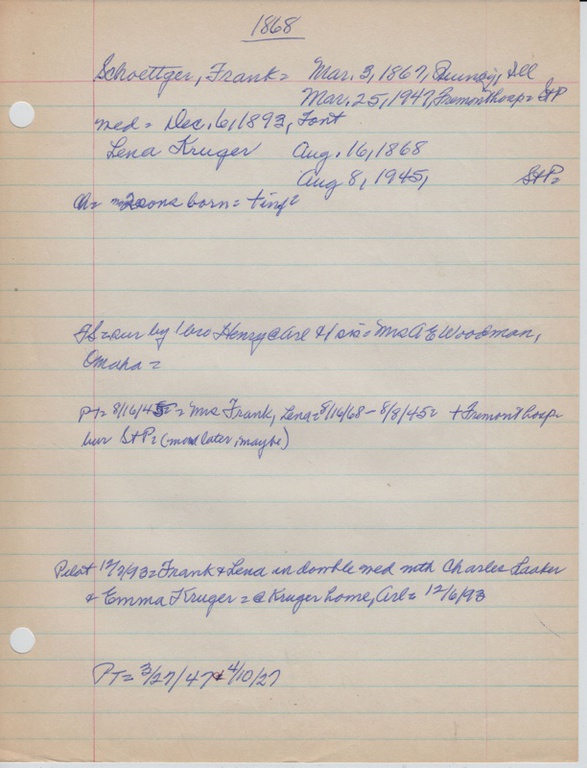 1868
Schoettger, Frank = Mar. 3, 1867, Quincy, Ill
Mar. 25, 1947, Fremont hosp = StP
wed = Dec. 6, 1893, Font
Lena Kruger Aug. 16, 1868
Aug 8, 1945, StP=
Ch = 2 sons born = + inf =
= sur by bro Henry @ Arl & 1 sis = Mrs A E Woodman,
Omaha =
PT = 8/16/45 = Mrs Frank, Lena = 8/16/68 - 8/8/45 = + Fremont hosp =
bur StP = (more later, maybe)
Pilot 12/7/93 = Frank & Lena in double wed with Charles Laaker
& Emma Kruger = @ Kruger home, Arl = 12/6/93
PT = 3/27/47 & 4/10/27